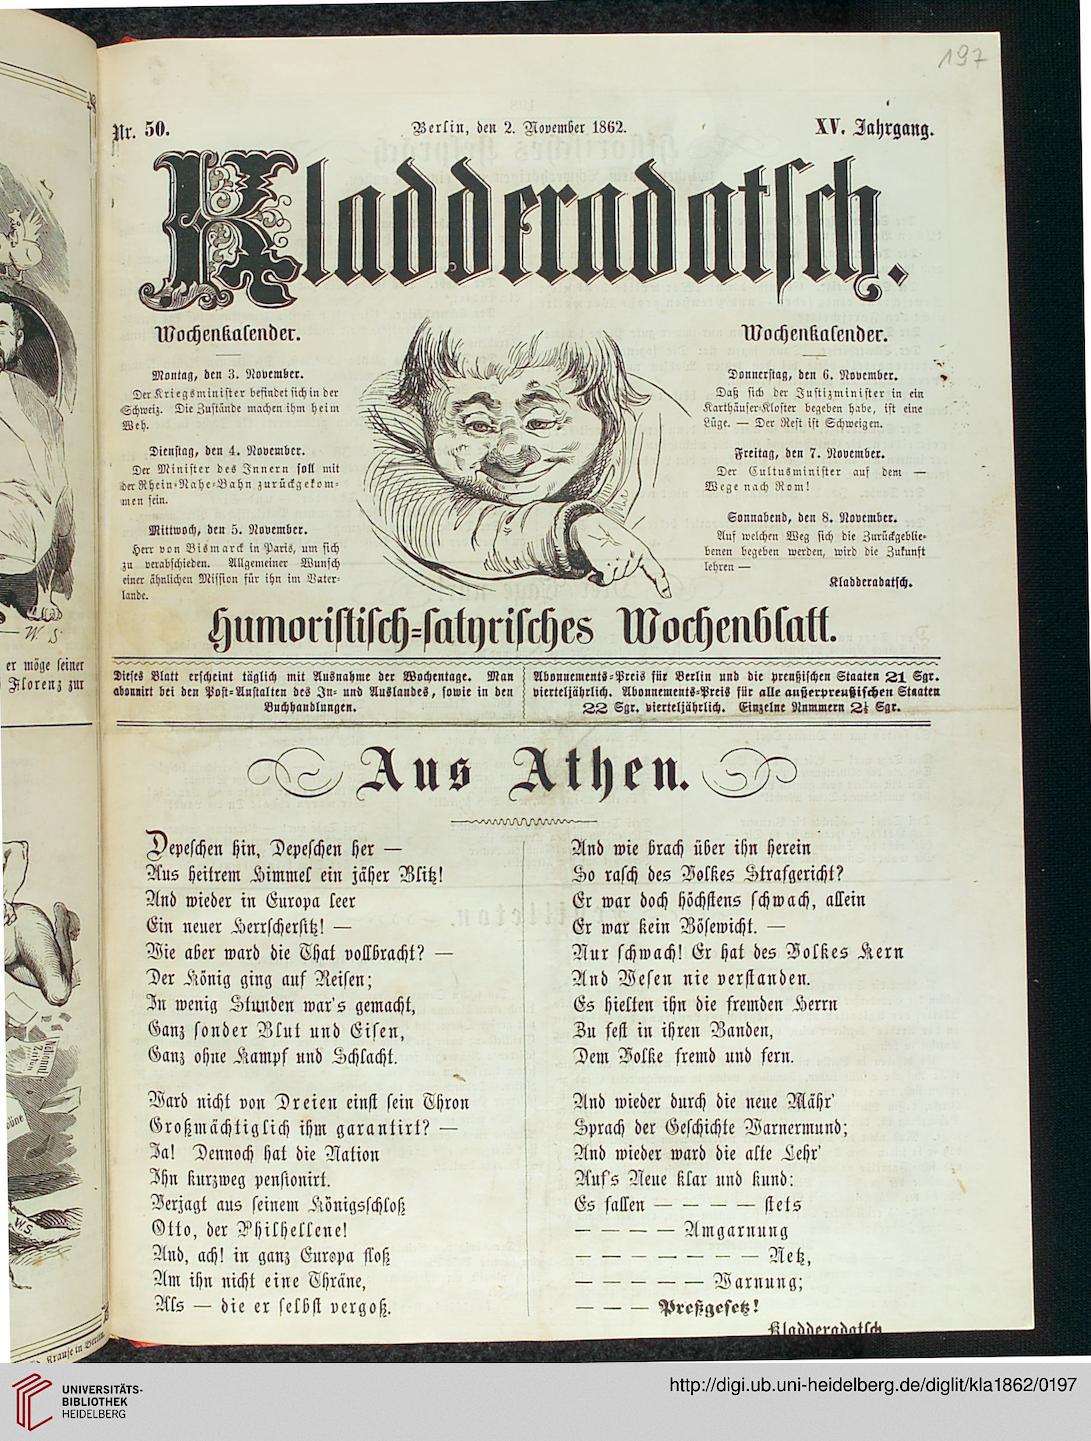 197
Nr. 50.
Berlin, den 2. November 1862.
XV. Jahrgang.
Kladderadatsch.
Wochenkalender.
Montag, den 3. November.
Der Kriegsminister befindet sich in der
Schweiz. Die Zustände machen ihm Heim
Weh.
Dienstag, den 4. November.
Der Minister des Innern soll mit
der Rhein-Nahe-Bahn zurückgekom-
men sein.
Mittwoch, den 5. November.
Herr von Bismarck in Paris, um sich
zu verabschieden. Allgemeiner Wunsch
einer ähnlichen Mission für ihn im Vater-
lande.
Wochenkalender.
Donnerstag, den 6. November.
Daß sich der Justizminister in ein
Karthäuser-Kloster begeben habe, ist eine
Lüge. — Der Rest ist Schweigen.
Freitag, den 7. November.
Der Cultusminister auf dem —
Wege nach Rom!
Sonnabend, den 8. November.
Auf welchen Weg sich die Zurückgeblie-
benen begeben werden, wird die Zukunft
lehren —
Kladderadatsch.
Humoristisch-satyrisches Wochenblatt.
Dieses Blatt erscheint täglich mit Ausnahme der Wochentage. Man
abonnirt bei den Post-Anstalten des In- und Auslandes, sowie in den
Buchhandlungen.
Abonnements-Preis für Berlin und die preußischen Staaten 21 Sgr.
vierteljährlich. Abonnements-Preis für alle außerpreußischen Staaten
22 Sgr. vierteljährlich. Einzelne Nummern 2½ Sgr.
Aus Athen.
Depeschen hin, Depeschen her —
Aus heitrem Himmel ein jäher Blitz!
Und wieder in Europa leer
Ein neuer Herrschersitz! —
Wie aber ward die That vollbracht? —
Der König ging auf Reisen;
In wenig Stunden war's gemacht,
Ganz sonder Blut und Eisen,
Ganz ohne Kampf und Schlacht.
Ward nicht von Dreien einst sein Thron
Großmächtiglich ihm garantirt? —
Ja! Dennoch hat die Nation
Ihn kurzweg pensionirt.
Verjagt aus seinem Königsschloß
Otto, der Philhellene!
Und, ach! in ganz Europa floß
Um ihn nicht eine Thräne,
Als — die er selbst vergoß.
Und wie brach über ihn herein
So rasch des Volkes Strafgericht?
Er war doch höchstens schwach, allein
Er war kein Bösewicht. —
Nur schwach! Er hat des Volkes Kern
Und Wesen nie verstanden.
Es hielten ihn die fremden Herrn
Zu fest in ihren Banden,
Dem Volke fremd und fern.
Und wieder durch die neue Mähr'
Sprach der Geschichte Warnermund;
Und wieder ward die alte Lehr'
Auf's Neue klar und kund:
Es fallen — — — — stets
— — — — Umgarnung
— — — — — — — Netz,
— — — — — Warnung;
— — — Preßgesetz!
Kladderadatsch
W S
er möge seiner
Florenz zur
National
Zeitung
W.S.
Krause in Berlin.
UNIVERSITÄTS-
BIBLIOTHEK
HEIDELBERG
http://digi.ub.uni-heidelberg.de/diglit/kla1862/0197